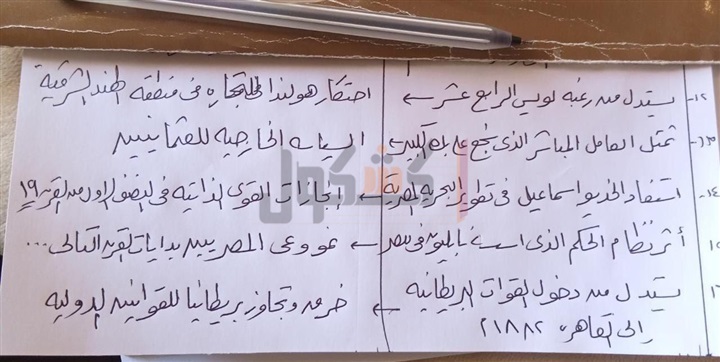 ١٢- يستدل من رغبة لويس الرابع عشر ← احتكار هولندا للتجارة فى منطقة الهند الشرقية
١٣- تمثل العامل المباشر الذى شجع على بك الكبير ← السياسة الخارجية للعثمانيين
١٤- استفاد الخديو اسماعيل فى تطوير البحرية المصرية ← انجازات القوى الذاتية فى النصف الاول من القرن ١٩
١٥ أثر نظام الحكم الذى اسسه نابليون فى مصر ← نمو وعى المصريين بدايات القرن التالى ...
١٦ يستدل من دخول القوات البريطانية ← خرق وتجاوز بريطانيا للقوانين الدولية
إلى القاهرة ١٨٨٢م
كشكول